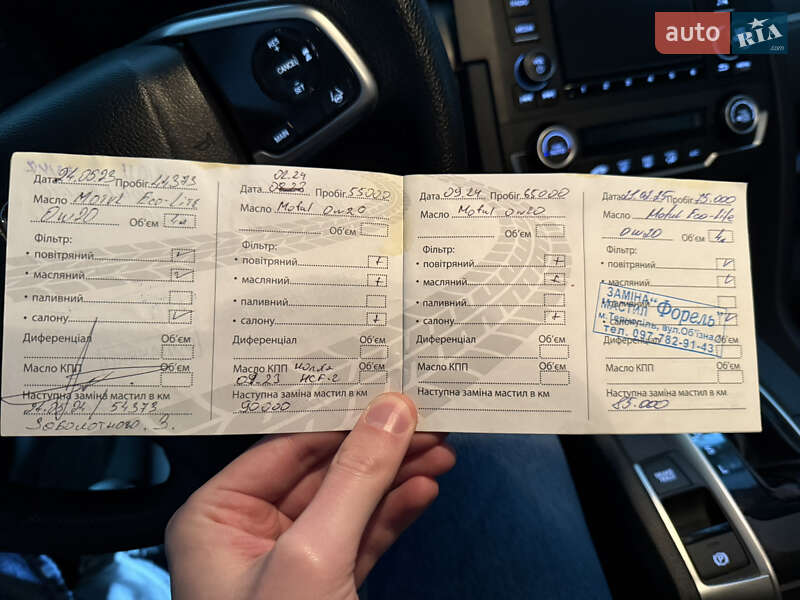 auto RIA.com
RADIO
MEDIA
RES
CANCEL
SET
MAIN
Дата 24.0523 Пробіг 44373
Масло Motul Eco-lite
0w20 Об'єм 4л
Фільтр:
• повітряний
• масляний
• паливний
• салону
Диференціал Об'єм
Масло КПП Об'єм
Наступна заміна мастил в км
54373
Заболотного 3.
02.24
Дата Пробіг 55000
Масло Motul 0w20
Об'єм
Фільтр:
• повітряний +
• масляний +
• паливний
• салону +
Диференціал Об'єм
Масло КПП Об'єм
09.23 HCF-2
Наступна заміна мастил в км
90000
Дата 09.24 Пробіг 65000
Масло Motul 0w20
Об'єм
Фільтр:
• повітряний +
• масляний +
• паливний
• салону +
Диференціал Об'єм
Масло КПП Об'єм
Наступна заміна мастил в км
Дата Пробіг 75.000
Масло Motul Eco-lite
0w20 Об'єм 4л
Фільтр:
• повітряний
• масляний
ЗАМІНА "Форель"
МАСТИЛ
м.Тернопіль, вул.Об'їзна
тел. 097-782-91-43
Диференціал Об'єм
Масло КПП Об'єм
Наступна заміна мастил в км
85.000
BRAKE HOLD
P